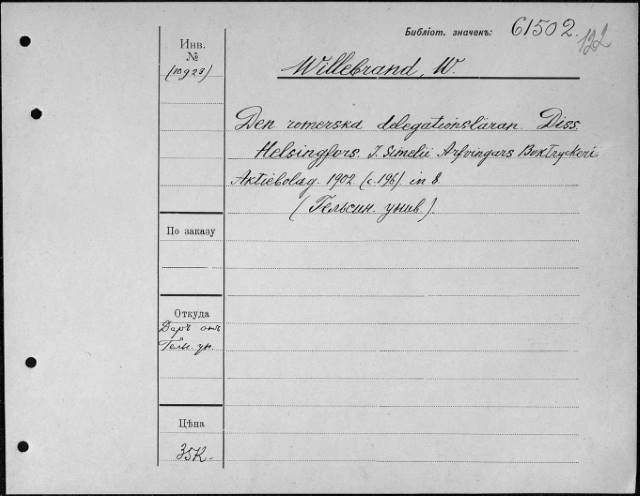 Библіот. значекъ: 61502.
122
Инв.
№
(10923)
Willebrand, W.
Den romerska delegationsläran. Diss.
Helsingfors. J. Simelii Arfvingars Boktryckeri
Aktiebolag. 1902. (c. 196) in 8.
(Гельсин. унив.).
По заказу
Откуда
Даръ отъ
Гельс. ун.
Цѣна
35К.